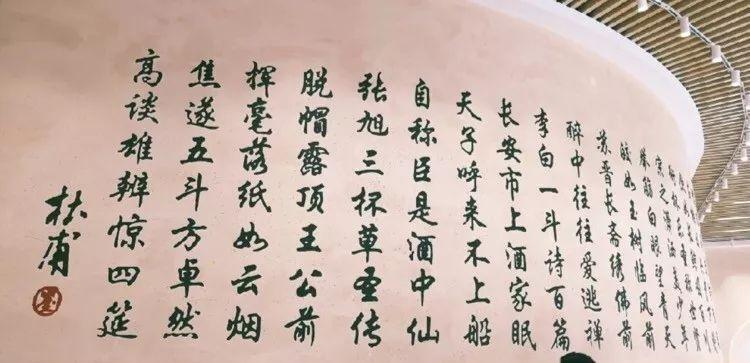 宗之潇洒美少年
举觞白眼望青天
皎如玉树临风前
苏晋长斋绣佛前
醉中往往爱逃禅
李白一斗诗百篇
长安市上酒家眠
天子呼来不上船
自称臣是酒中仙
张旭三杯草圣传
脱帽露顶王公前
挥毫落纸如云烟
焦遂五斗方卓然
高谈雄辩惊四筵
杜甫